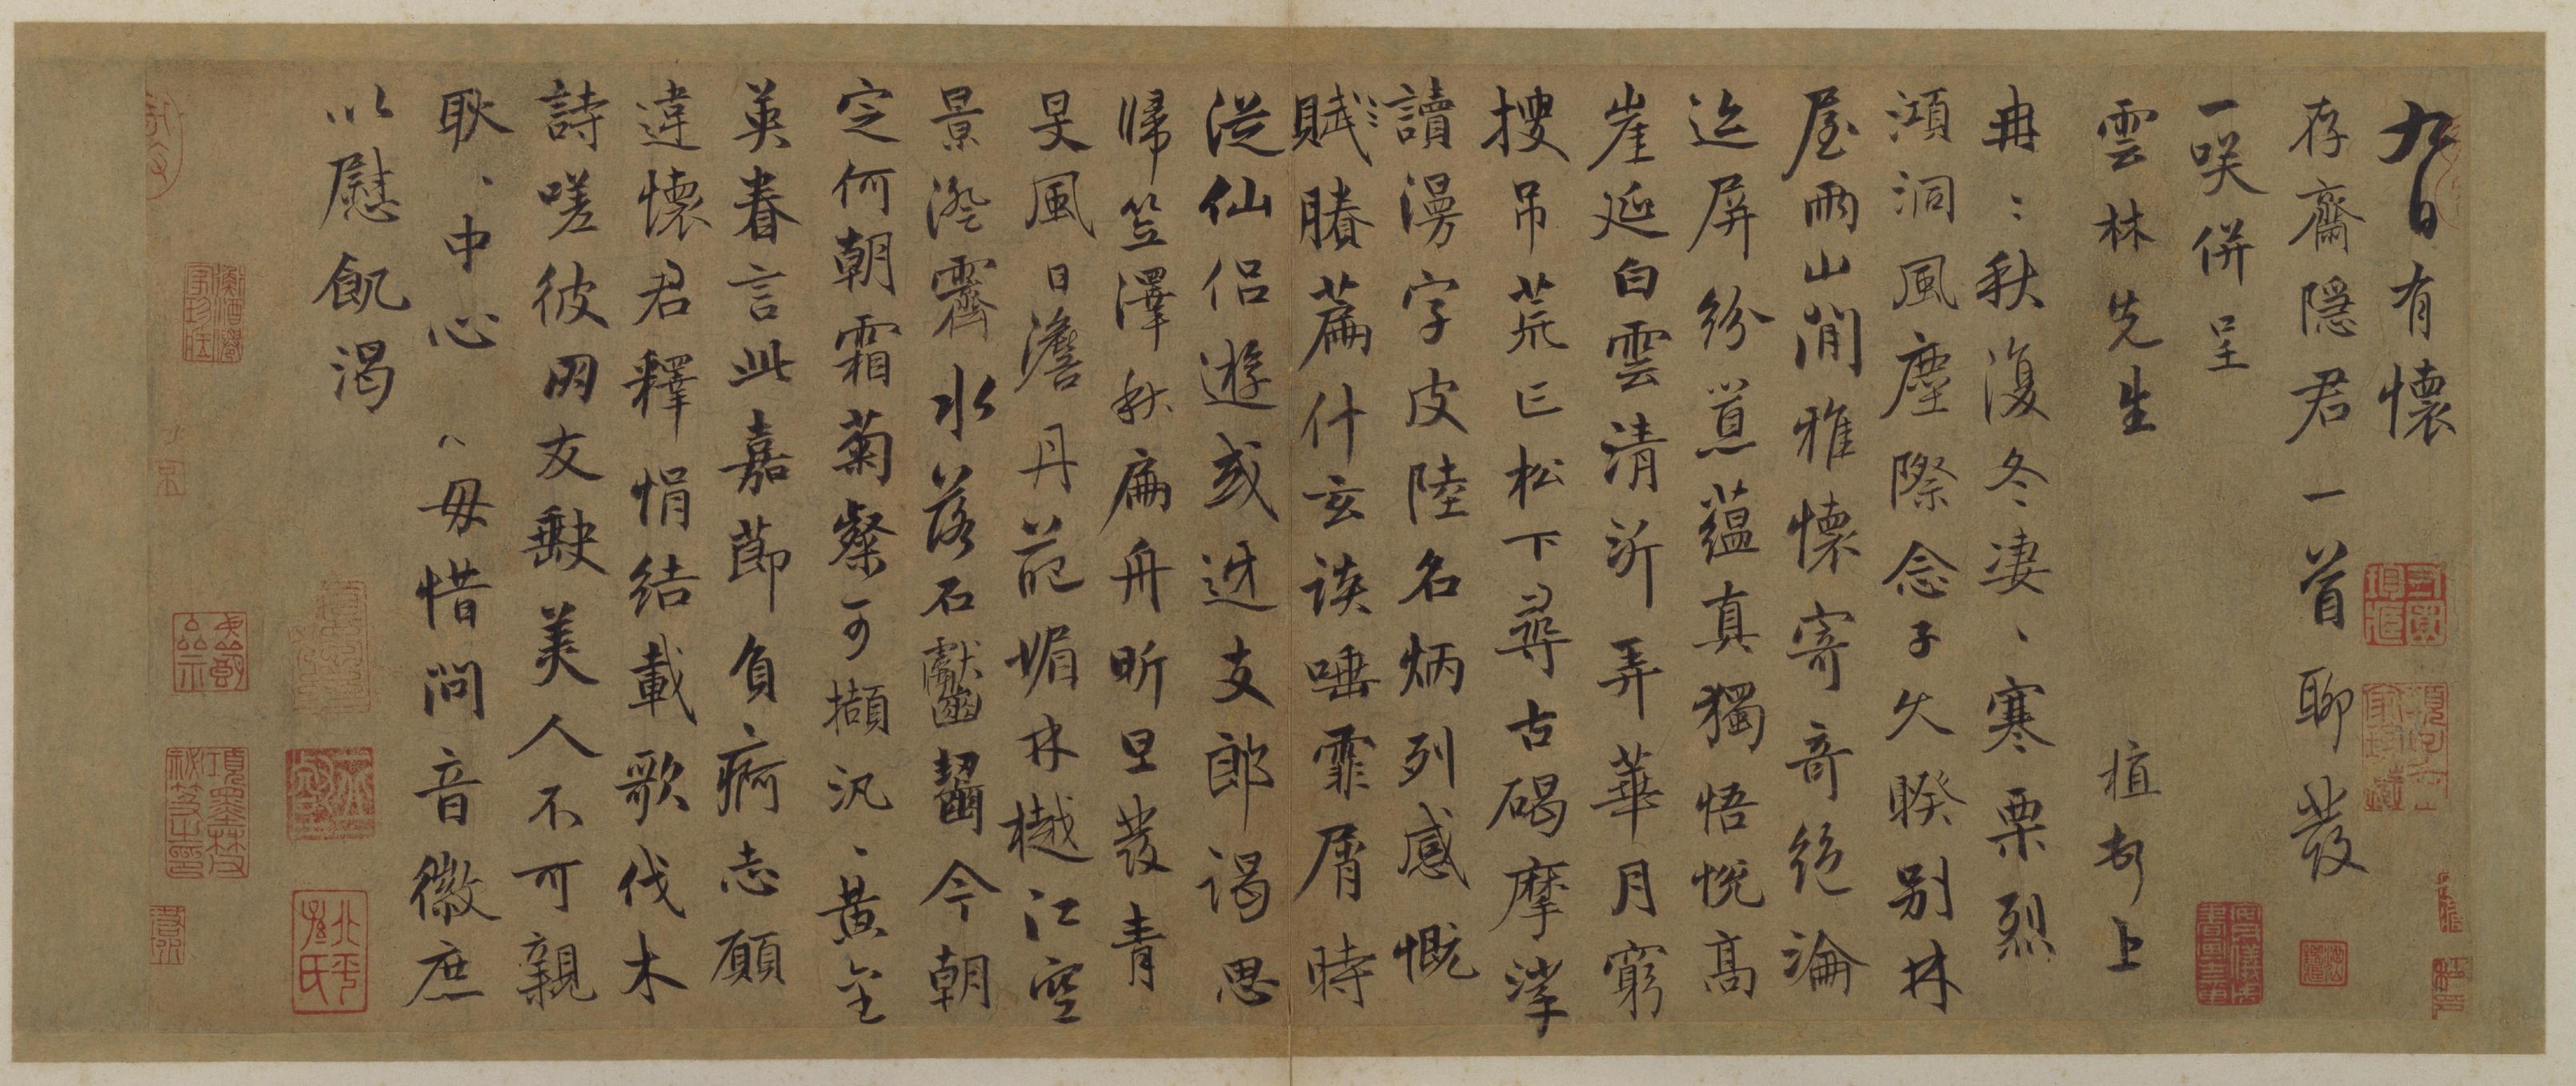 九日有懷
存齋隱君一首聊發
一咲併呈
雲林先生　植頓上
冉〻秋復冬凄〻寒栗烈
澒洞風塵際念子久暌別林
屋兩山間雅懷寄奇絕淪
迹屏紛囂蘊真獨悟悅高
崖延白雲清泝弄華月窮
搜吊荒丘松下尋古碣摩挲
讀漫字皮陸名炳列感慨
賦賸篇什玄談唾霏屑時
從仙侶遊或迓支郎謁思
歸笠澤秋扁舟昕旦發青
旻風日澹丹葩媚林樾江空
景澄霽水落石巘齧今朝
定何朝霜菊粲可擷汎〻黃金
英眷言此嘉節負痾志願
違懷君釋悁結載歌伐木
詩嗟彼朋友缺美人不可親
耿〻中心〻毋惜問音徽庶
以慰飢渴